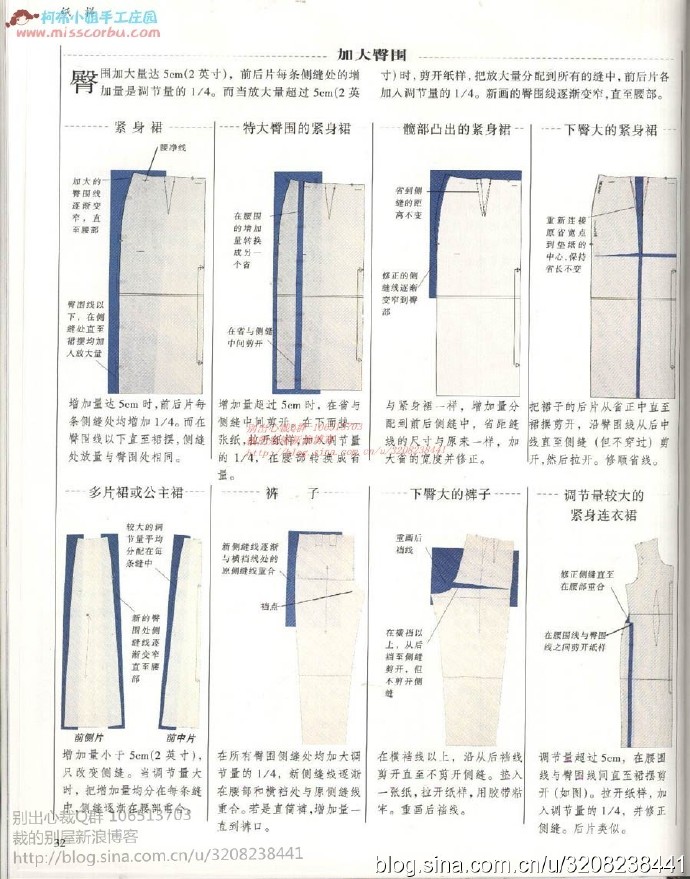 纸 样
柯布小姐手工庄园
www.misscorbu.com
加大臀围
臀围加大量达 5cm(2 英寸)，前后片每条侧缝处的增
加量是调节量的 1/4。而当放大量超过 5cm(2 英
寸)时，剪开纸样，把放大量分配到所有的缝中，前后片各
加入调节量的 1/4。新画的臀围线逐渐变窄，直至腰部。
紧 身 裙
腰净线
加大的
臀围线
逐渐变
窄，直
至腰部
臀围线以
下，在侧
缝处直至
裙摆均加
入放大量
增加量达 5cm 时，前后片每
条侧缝处均增加 1/4。而在
臀围线以下直至裙摆，侧缝
处放量与臀围处相同。
特大臀围的紧身裙
在腰围
的增加
量转换
成另一
个省
在省与侧缝
中间剪开
增加量超过 5cm 时，在省与
侧缝中间剪开，在下面垫一
张纸，拉开纸样，加入调节量
的 1/4，在腰部转换成省
量。
髋部凸出的紧身裙
省到侧
缝的距
离不变
修正的侧
缝线逐渐
变窄到臀
部
与紧身裙一样，增加量分
配到前后侧缝中，省距缝
线的尺寸与原来一样，加
大省的宽度并修正。
下臀大的紧身裙
重新连接
原省宽点
到垫纸的
中心，保持
省长不变
把裙子的后片从省正中直至
裙摆剪开，沿臀围线从后中
线直至侧缝（但不穿过）剪
开，然后拉开。修顺省线。
多片裙或公主裙
较大的调
节量平均
分配在每
条缝中
新的臀
围处侧
缝线逐
渐变窄
直至腰
部
前侧片
前中片
增加量小于 5cm(2 英寸)，
只改变侧缝。当调节量大
时，把增加量均分在每条缝
中，侧缝逐渐在腰部重合。
裤 子
新侧缝线逐渐
与横裆线处的
原侧缝线重合
裆点
在所有臀围侧缝处均加大调
节量的 1/4，新侧缝线逐渐
在腰部和横裆处与原侧缝线
重合。若是直筒裤，增加量一
直到裤口。
下臀大的裤子
重画后
裆线
在横裆以
上，从后
裆至侧缝
剪开，但
不剪开侧
缝
在横裆线以上，沿从后裆线
剪开直至不剪开侧缝。垫入
一张纸，拉开纸样，用胶带粘
牢。重画后裆线。
调节量较大的
紧身连衣裙
修正侧缝直至
在腰部重合
在腰围线与臀围
线之间剪开纸样
调节量超过 5cm，在腰围
线与臀围线间直至裙摆剪
开（如图）。拉开纸样，加
入调节量的 1/4，并修正
侧缝。后片类似。
别出心裁Q群 106313703
裁的别屋新浪博客
http://blog.sina.com.cn/u/3208238441
32
blog.sina.com.cn/u/3208238441